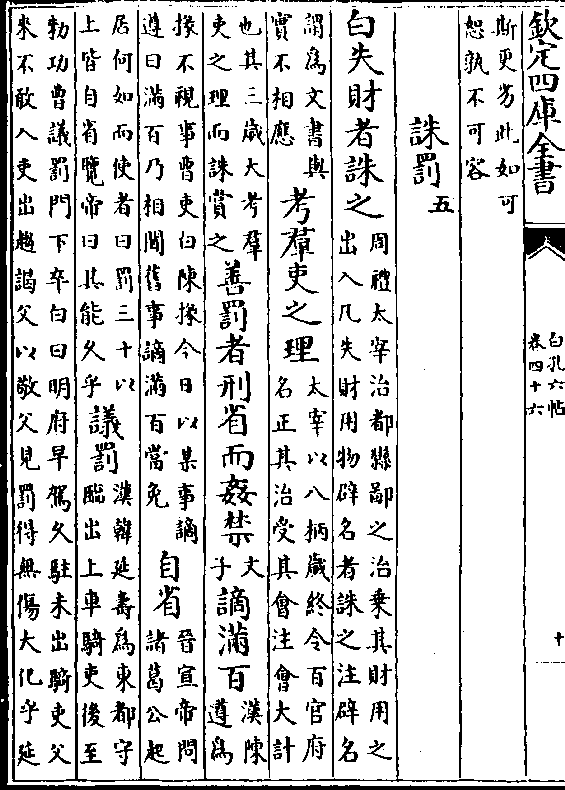 欽定四庫全書
白孔六帖
卷四十六
十
斯更劣此如可
恕孰不可容
誅罰五
白失財者誅之
周禮太宰治都縣鄙之治乗其財用之
出入凡失財用物辟名者誅之注辟名
謂為文書與
實不相應
考羣吏之理
太宰以八柄歲終令百官府
名正其治受其會注會大計
也其三歲大考羣
吏之理而誅賞之
善罰者刑省而姦禁
文
子
謫滿百
漢陳
遵為
掾不視事曹吏白陳掾今日以某事謫
遵曰滿百乃相聞舊事謫滿百當免
自省
晉宣帝問
諸葛公起
居何如而使者曰罰三十以
上皆自省覽帝曰其能久乎
議罰
漢韓延壽為東都守
臨出上車騎吏後至
勅功曹議罰門下卒白曰明府早駕久駐未出騎吏父
来不敢入吏出趨謁父以敬父見罰得無傷大化乎延